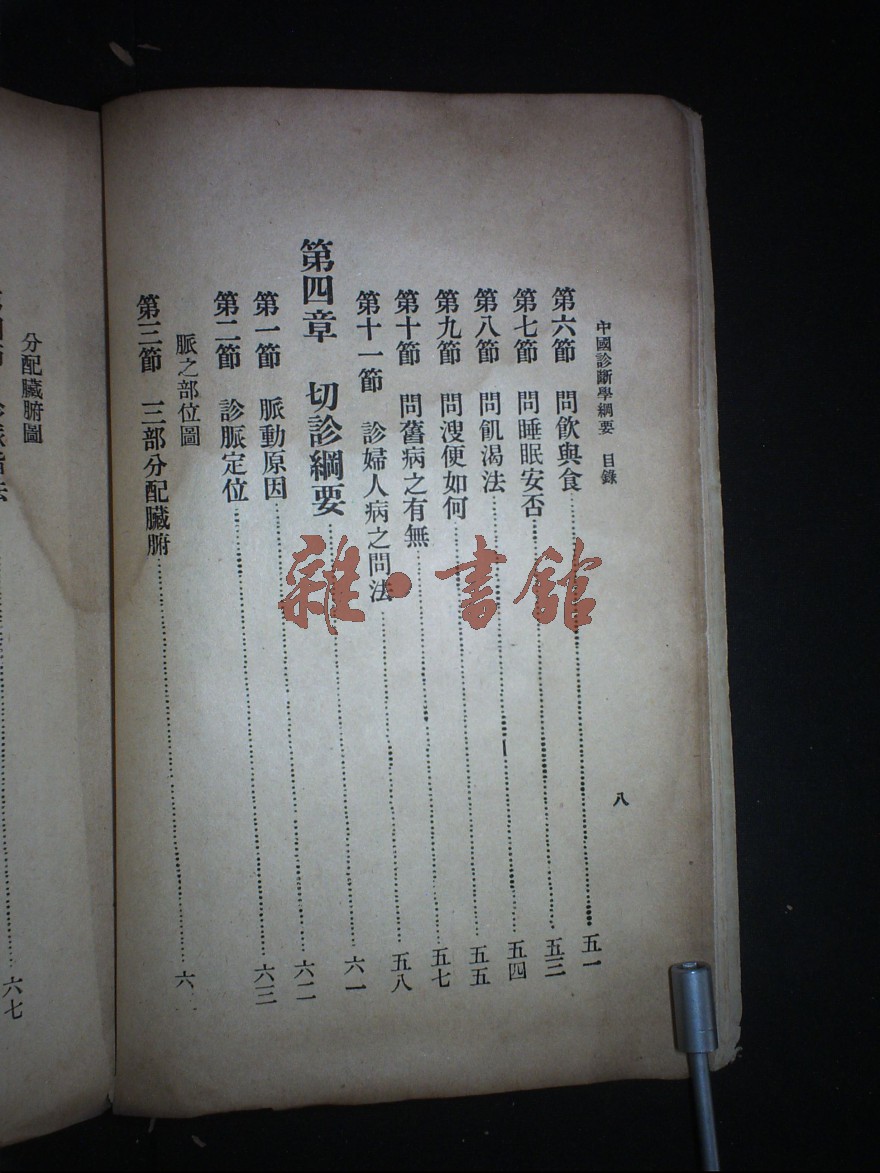 中國診斷學綱要 目錄 八
第六節 問飲與食 五一
第七節 問睡眠安否 五三
第八節 問飢渴法 五四
第九節 問溲便如何 五五
第十節 問舊病之有無 五七
第十一節 診婦人病之問法 五八
第四章 切診綱要 六一
第一節 脈動原因 六二
第二節 診脈定位 六三
脈之部位圖
第三節 三部分配臟腑 六
分配臟腑圖
六七
雜·書館